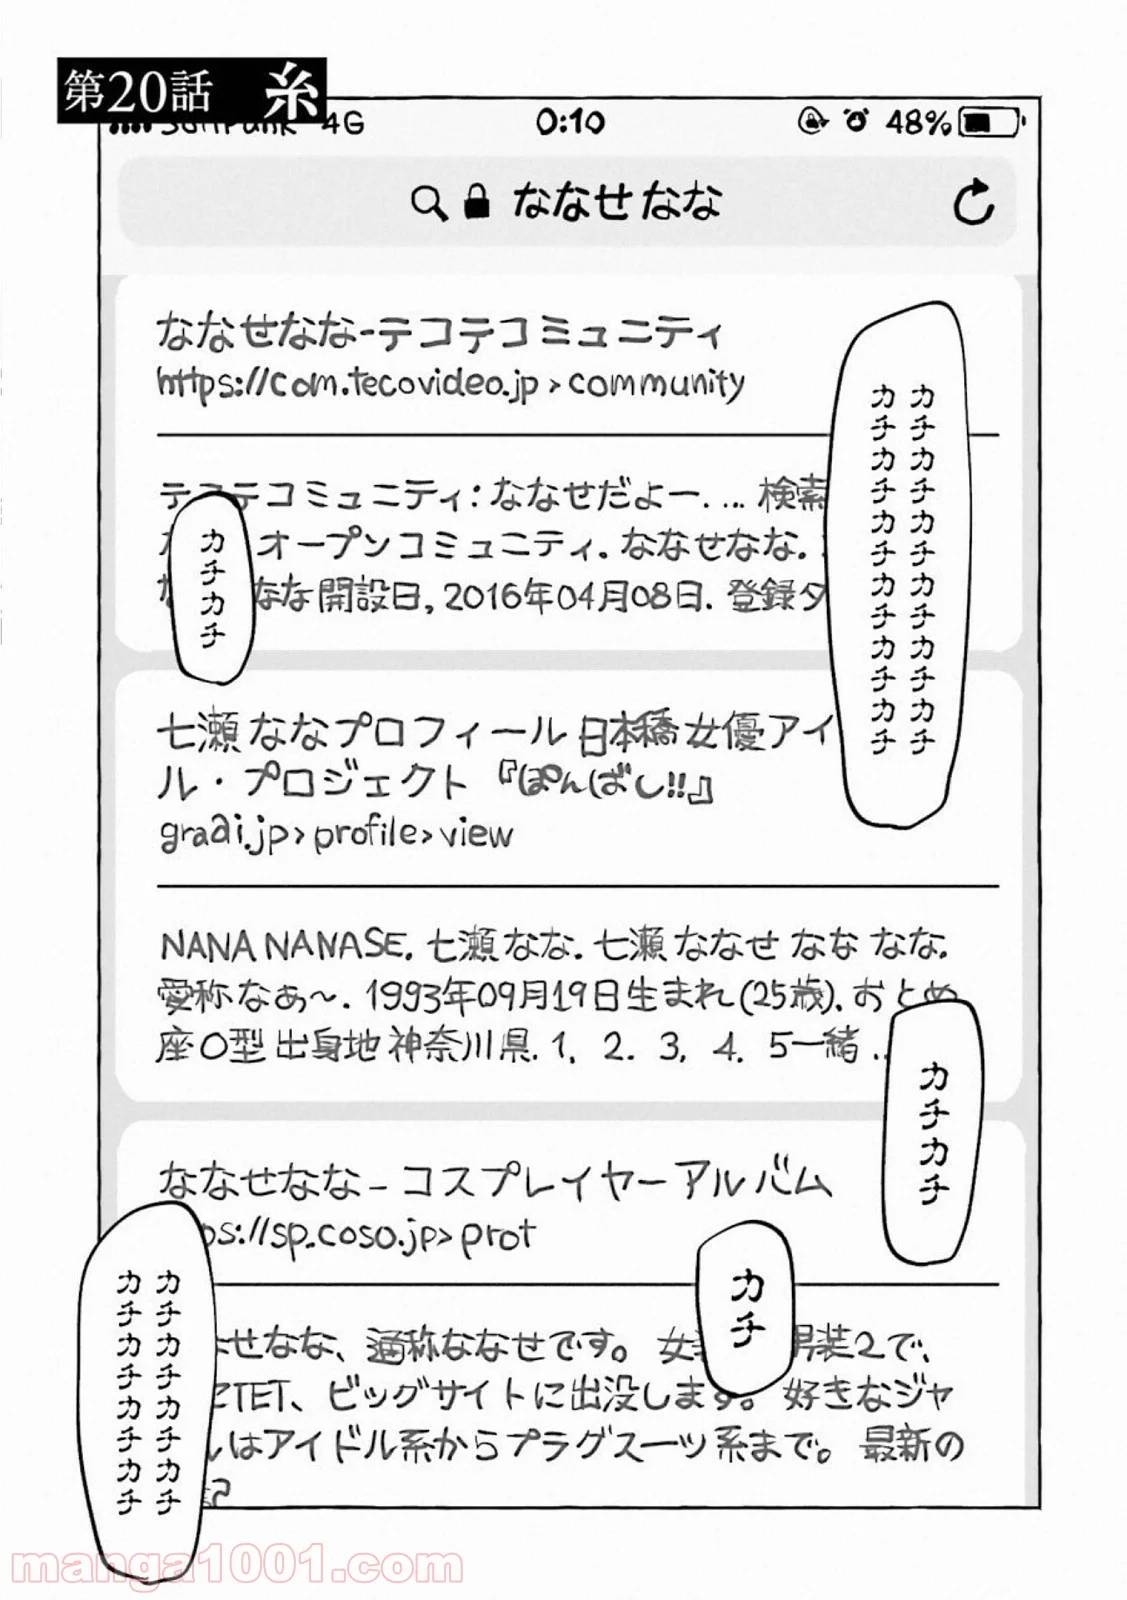 第20話 糸
4G 0:10 48%
ななせ なな
ななせなな-テコテコミュニティ
https://com.tecovideo.jp>community
テコテコミュニティ:ななせだよー. ... 検索
オープンコミュニティ. ななせなな.
なな開設日, 2016年04月08日. 登録タ
七瀬 ななプロフィール 日本橋 女優アイ
ル・プロジェクト『ぽんばし!!』
graai.jp>profile>view
NANA NANASE. 七瀬 なな. 七瀬 ななせ なな なな.
愛称なぁ~. 1993年09月19日生まれ(25歳). おとめ
座O型 出身地 神奈川県. 1, 2. 3, 4. 5一緒 ..
ななせなな-コスプレイヤーアルバム
ps://sp.coso.jp>prot
せなな、通称ななせです。 女 男装2で、
TET、ビッグサイトに出没します。 好きなジャ
ルはアイドル系からプラグスーツ系まで。 最新の
記
カチカチカチカチカチカチ
カチカチカチカチカチカチ
カチカチ
カチカチ
カチ
カチカチカチカチ
カチカチカチカチ
manga1001.com